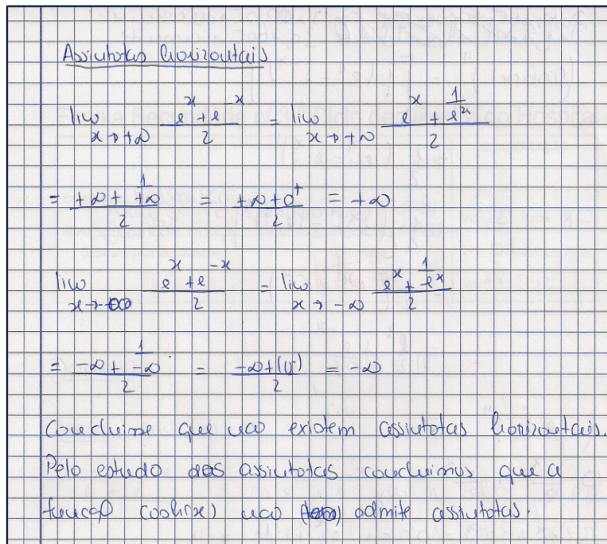 Assintotas horizontais
lim x→+∞ (e^x + e^-x)/2 = lim x→+∞ (e^x + 1/e^x)/2
= (+∞ + 1/+∞)/2 = (+∞ + 0⁺)/2 = +∞
lim x→-∞ (e^x + e^-x)/2 = lim x→-∞ (e^x + 1/e^x)/2
= (-∞ + 1/-∞)/2 = (-∞ + (0⁻))/2 = -∞
Concluimse que nao existem assintotas horizontais.
Pelo estudo das assintotas concluimos que a
função (cosh(x)) nao admite assintotas.